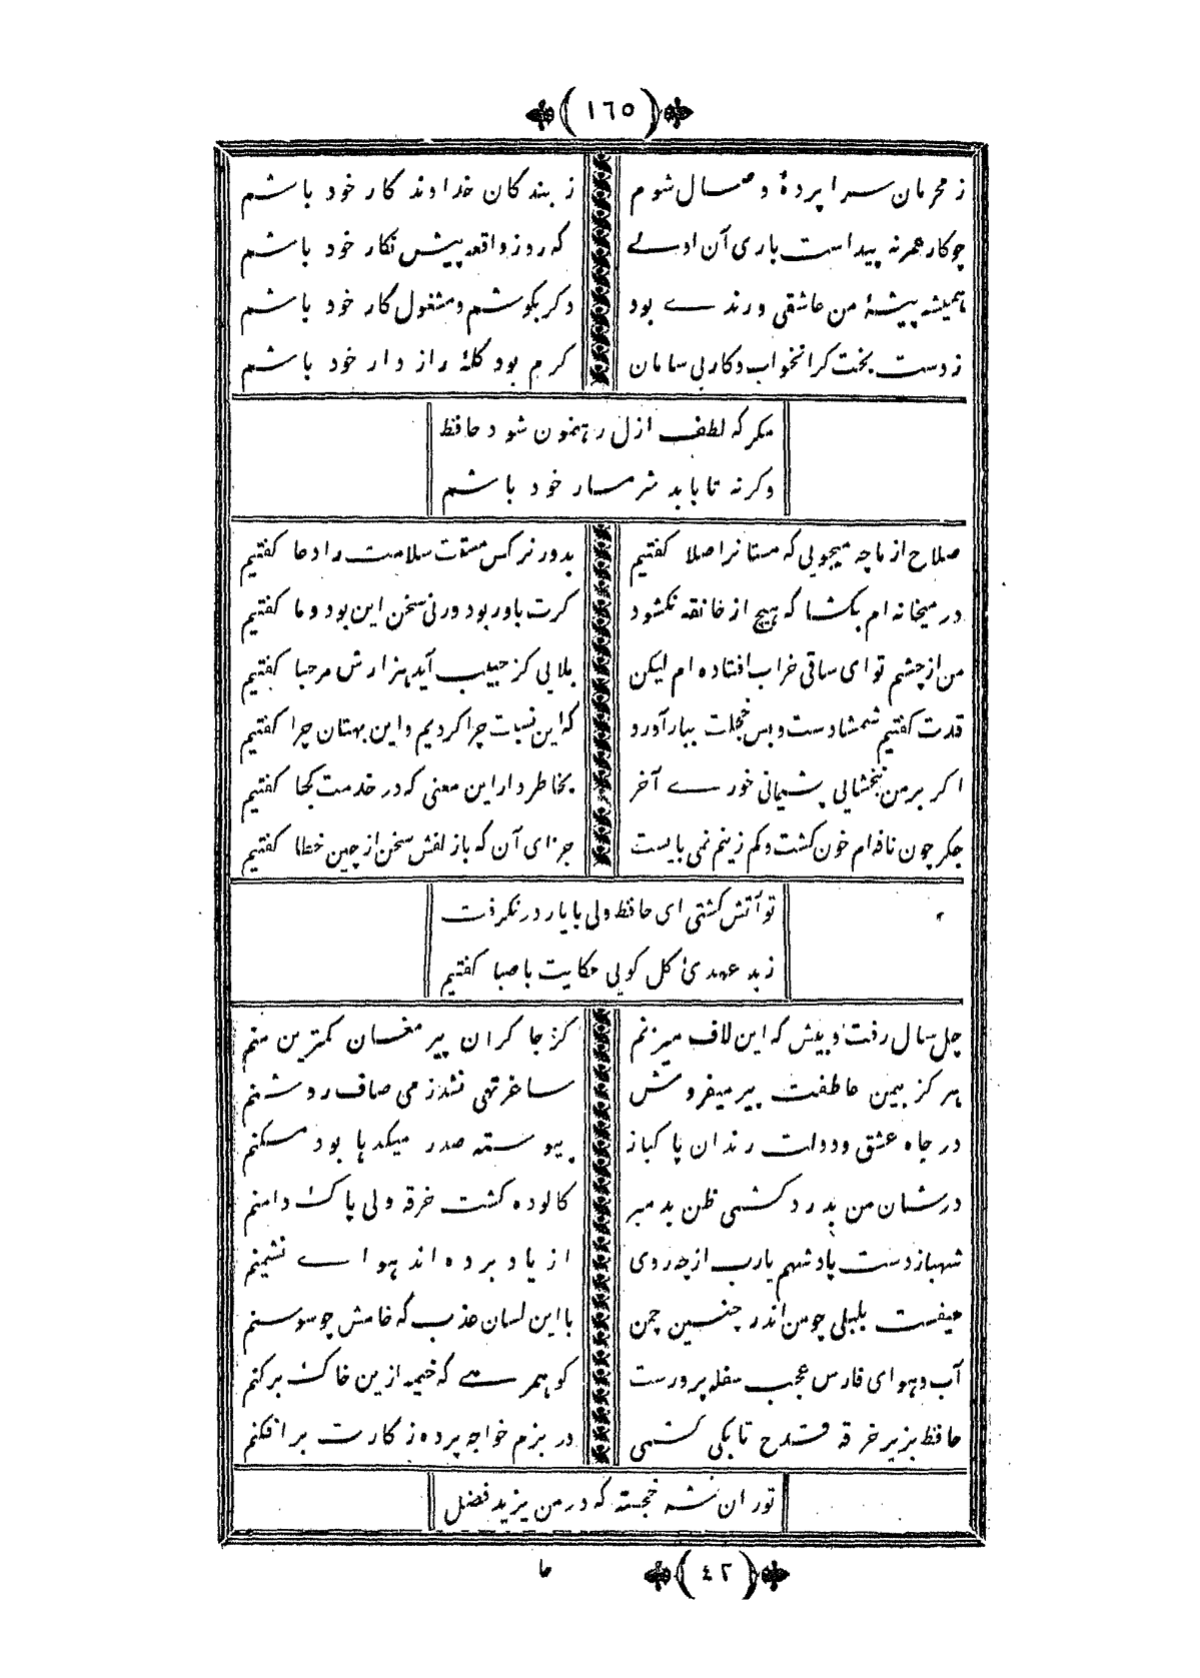 ١٦٥
ز محرمان سرا پردهٔ وصال شوم ز بندکان خداوند کار خود باشم
چو کار عمر نه پیداست باری آن اولے که روز واقعه پیش نکار خود باشم
همیشه پیشهٔ من عاشقی و رندے بود دکر بکوشم و مشغول کار خود باشم
ز دست بخت کرانخواب و کار بی سامان کرم بود کلهٔ راز دار خود باشم
مکر که لطف ازل رهنمون شود حافظ
وکرنه تا بابد شرمسار خود باشم
صلاح از ما چه میجویی که مستانرا صلا کفتیم بدور نرکس مستت سلامت را دعا کفتیم
در میخانه ام بکشا که هیچ از خانقه نکشود کرت باور بود ورنی سخن این بود و ما کفتیم
من از چشم تو ای ساقی خراب افتاده ام لیکن بلایی کز حبیب آید هزارش مرحبا کفتیم
قدت کفتیم شمشادست و بس خجلت ببار آورد که این نسبت چرا کردیم و این بهتان چرا کفتیم
اکر بر من نبخشایی پشیمانی خورے آخر بخاطر دار این معنی که در خدمت کجا کفتیم
جکر چون نافه ام خون کشت و کم زینم نمی بایست جزای آن که با زلفش سخن از چین خطا کفتیم
تو آتش کشتی ای حافظ ولی با یار در نکرفت
ز بد عهدیٔ کل کویی حکایت با صبا کفتیم
چل سال رفت و بیش که این لاف میزنم کز جاکران پیر مغان کمترین منم
هرکز بیمن عاطفت پیر میفروش ساغر تهی نشد ز می صاف روشنم
در جاه عشق و دولت رندان پاکباز پیوسته صدر میکدها بود مسکنم
در شان من بدرد کشی ظن بد مبر کالوده کشت خرقه ولی پاک دامنم
شهباز دست پادشهم یارب از چه روی از یاد برده اند هواے نشیمنم
حیفست بلبلی چو من اندر چنین چمن با این لسان عذب که خامش چو سوسنم
آب و هوای فارس عجب سفله پرورست کو همرهے که خیمه ازین خاک برکنم
حافظ بزیر خرقه قدح تا بکی کشی در بزم خواجه پرده ز کارت برافکنم
توران شه خجسته که در من یزید فضل
٤٢
حا